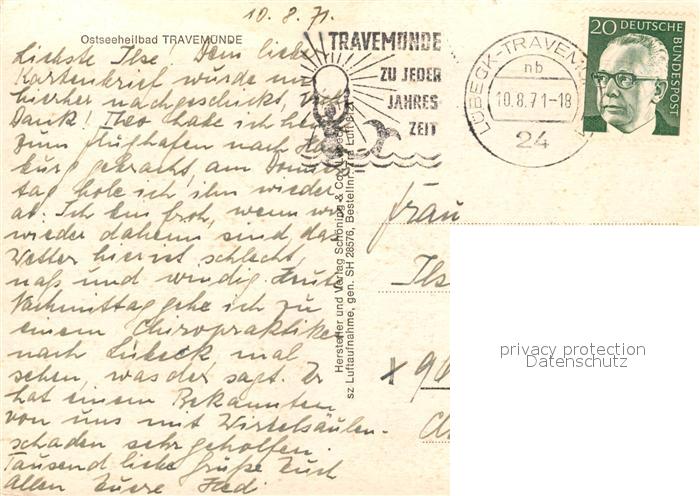 10.8.71.
Ostseeheilbad TRAVEMÜNDE
Liebste Ilse! Dein lieber
Kartenbrief wurde mir
hierher nachgeschickt, Viel
Dank! Theo habe ich heu
zum Flughafen nach Ham
burg gebracht, am Donners
tag hole ich ihn wieder
ab. Ich bin froh, wenn wir
wieder daheim sind, das
Wetter hier ist schlecht,
naß und windig. Heute
Nachmittag gehe ich zu
einem Chiropraktiker
nach Lübeck mal
sehen, was der sagt. Er
hat einem Bekannten
von uns mit Wirbelsäulen-
schaden sehr geholfen.
Tausend liebe Grüße Euch
allen Eure Hedi
TRAVEMÜNDE
ZU JEDER
JAHRES-
ZEIT
LÜBECK-TRAVEMÜ
nb
10.8.71-18
24
20 DEUTSCHE
BUNDESPOST
Hersteller und Verlag Schöning & Co
sz Luftaufnahme, gen. SH 28576, Bestellnr.
Frau
Ils
x 90
privacy protection
Datenschutz